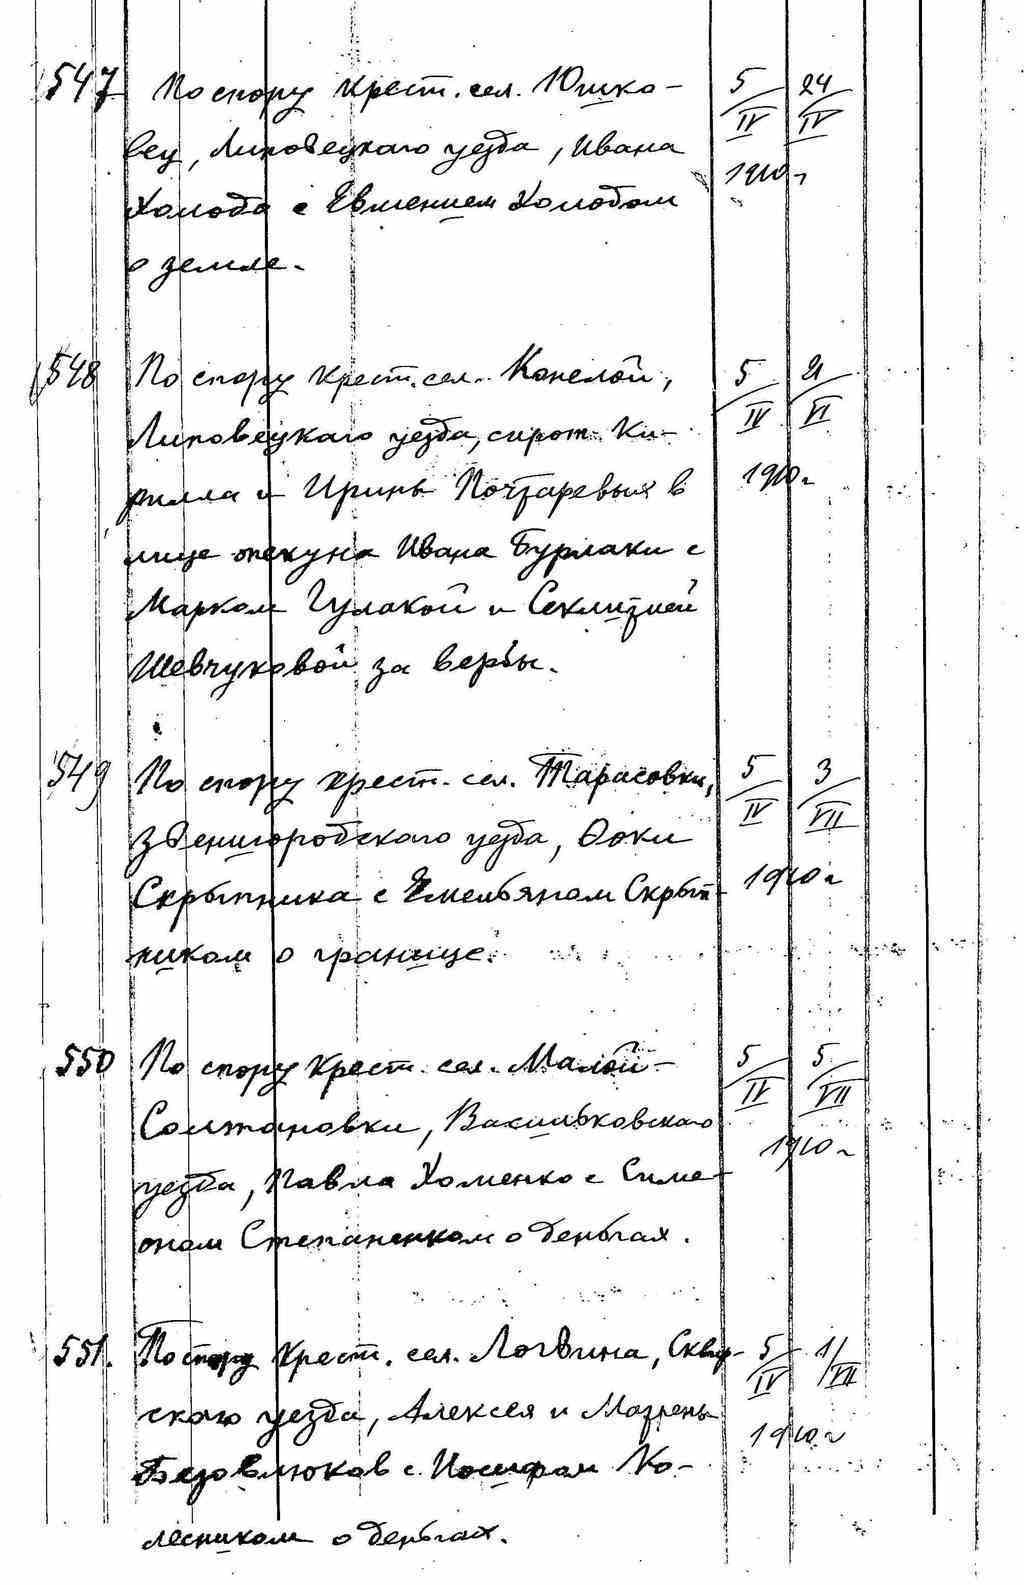 547 По спору крест. сел. Юшко- 5/IV 24/IV
вец, Липовецкаго уезда, Ивана 1910 г
Холода с Евмением Холодом
о земле.
548 По спору крест. сел. Конелой, 5/IV 21/VI
Липовецкаго уезда, сирот Ки- 1910 г
рилла и Ирины Почтаревых в
лице опекуна Ивана Бурлаки с
Марком Гулакой и Секлитией
Шевчуковой за вербы.
549 По спору крест. сел. Тарасовки, 5/IV 3/VII
Звенигородскаго уезда, Фоки
Скрыпника с Емельяном Скрып- 1910 г
ником о границе.
550 По спору крест. сел. Малой- 5/IV 5/VII
Солтановки, Васильковскаго 1910 г
уезда, Павла Хоменко с Симе-
оном Степаненком о деньгах.
551. По спору крест. сел. Логвина, Сквир- 5/IV 1/VII
скаго уезда, Алексея и Матрены 1910 г
Безовлюков с Иосифом Ко-
лесником о деньгах.